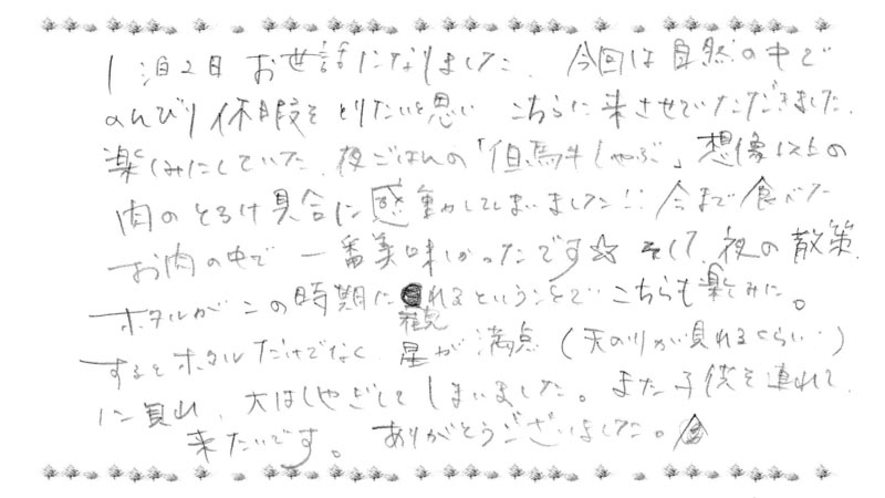 1泊2日 お世話になりました。 今回は自然の中で
のんびり休暇をとりたいと思い こちらに来させていただきました。
楽しみにしていた、夜ごはんの「但馬牛しゃぶ」想像以上の
肉のとろけ具合に感動してしまいました!! 今まで食べた
お肉の中で 一番美味しかったです☆ そして、夜の散策。
ホタルがこの時期に観れるということで、こちらも楽しみに。
するとホタルだけでなく、星が満点(天の川が見れるくらい‥)
に見れ、大はしゃぎしてしまいました。また子供を連れて
来たいです。ありがとうございました。